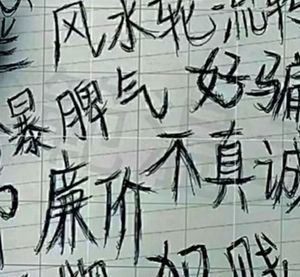 风水轮流转
暴脾气 好骗
廉价 不真诚
犯贱